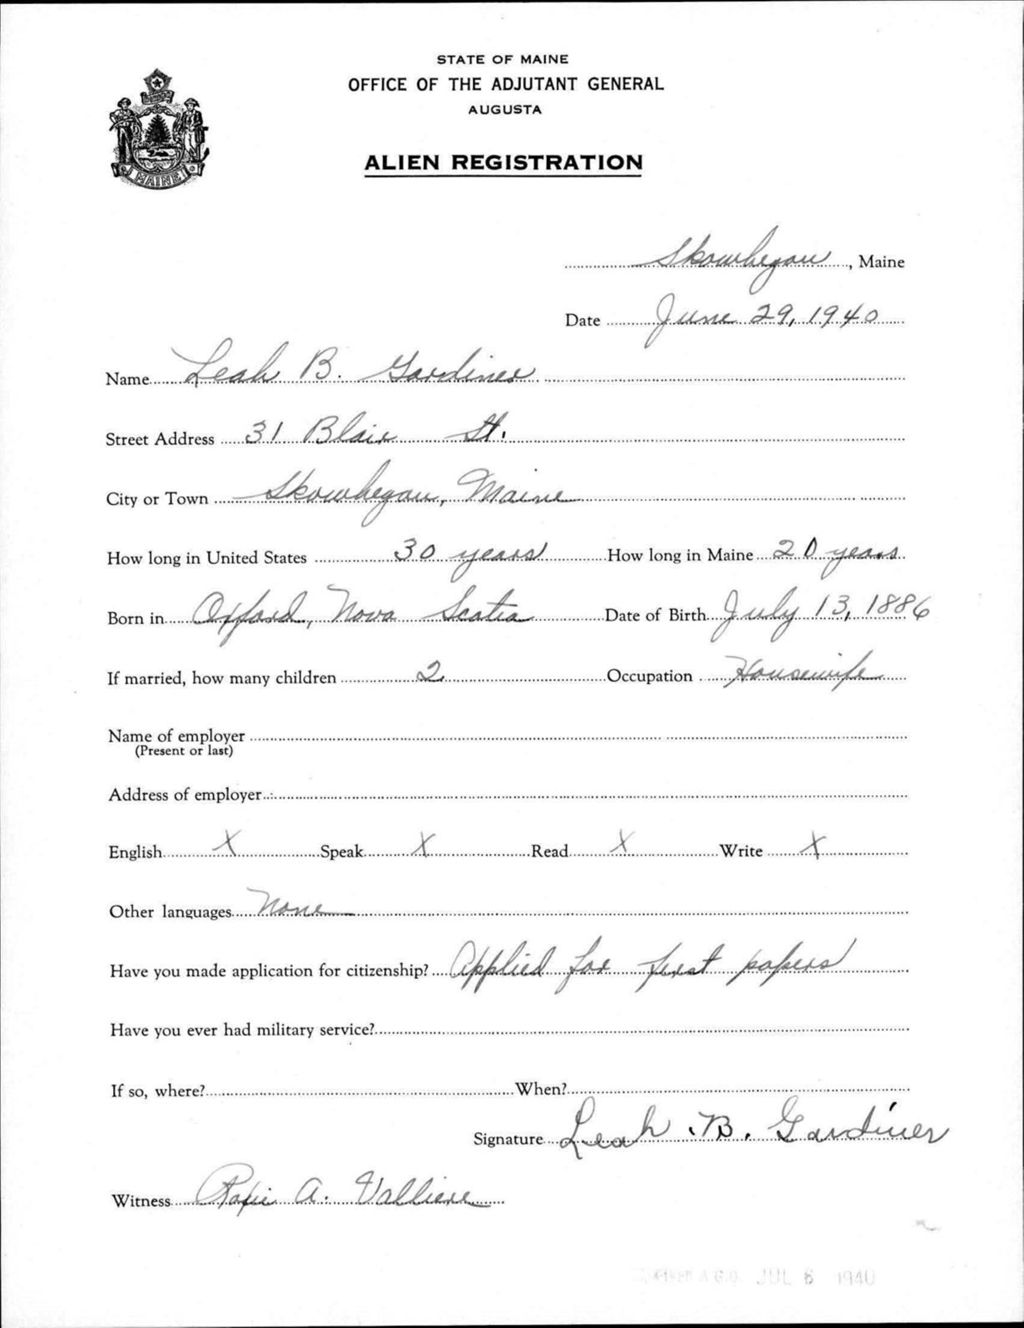 STATE OF MAINE
OFFICE OF THE ADJUTANT GENERAL
AUGUSTA
ALIEN REGISTRATION
MAINE
Skowhegan, Maine
Date June 29, 1940
Name Leah B. Gardiner
Street Address 31 Blair St.
City or Town Skowhegan, Maine
How long in United States 30 years How long in Maine 20 years
Born in Oxford, Nova Scotia Date of Birth July 13, 1886
If married, how many children 2 Occupation Housewife
Name of employer
(Present or last)
Address of employer
English X Speak X Read X Write X
Other languages None
Have you made application for citizenship? Applied for first papers
Have you ever had military service?
If so, where? When?
Signature Leah B. Gardiner
Witness A. Valliere
A.G.O. JUL 6 1940